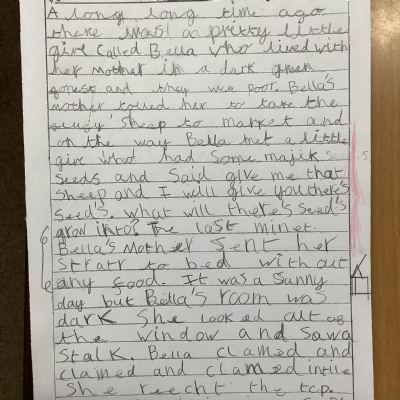 A long long time ago
there was a pretty little
girl called Bella who lived with
her mother in a dark green
forest and they were poor. Bella's
mother tolled her to take the
sheep to market and
on the way Bella met a little
girl who had some majik
seeds and said give me that
sheep and I will give you there's
seed's. What will there's seed's
grow into? The last minet.
Bella's Mother sent her
stratr to bed without
any food. It was a sunny
day but Bella's room was
dark she looked
the window and sawa
stalk. Bella clamed and
clamed and clamed intile
she reecht the tcp.